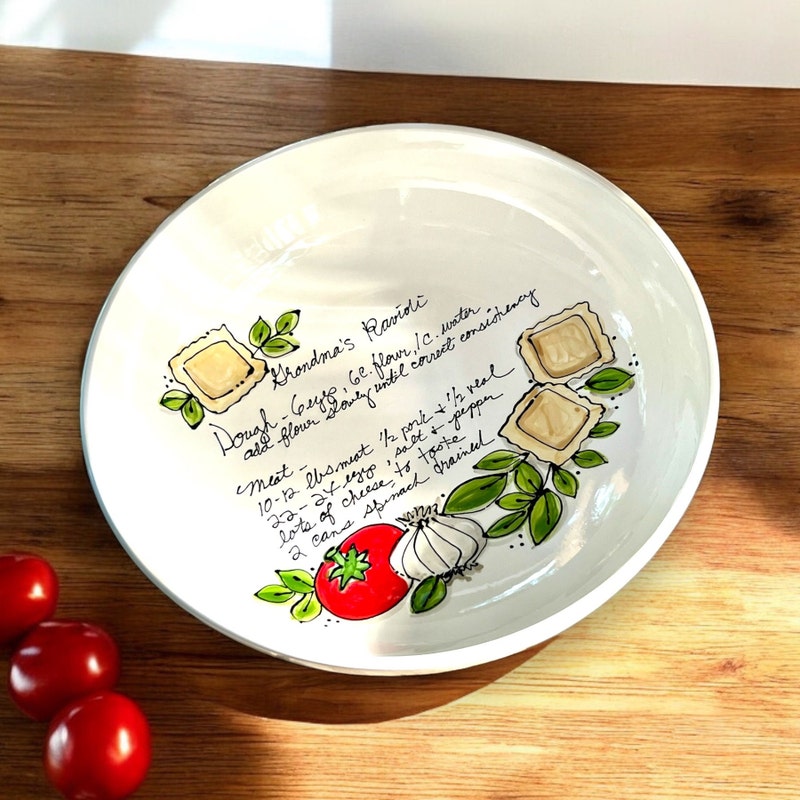 Grandma's Ravioli
Dough - 6 eggs, 6c. flour, 1c. water
add flour slowly until correct consistency
Meat -
10-12 lbs meat 1/2 pork & 1/2 veal
22-24 eggs, salt & pepper
lots of cheese, to taste
2 cans spinach drained